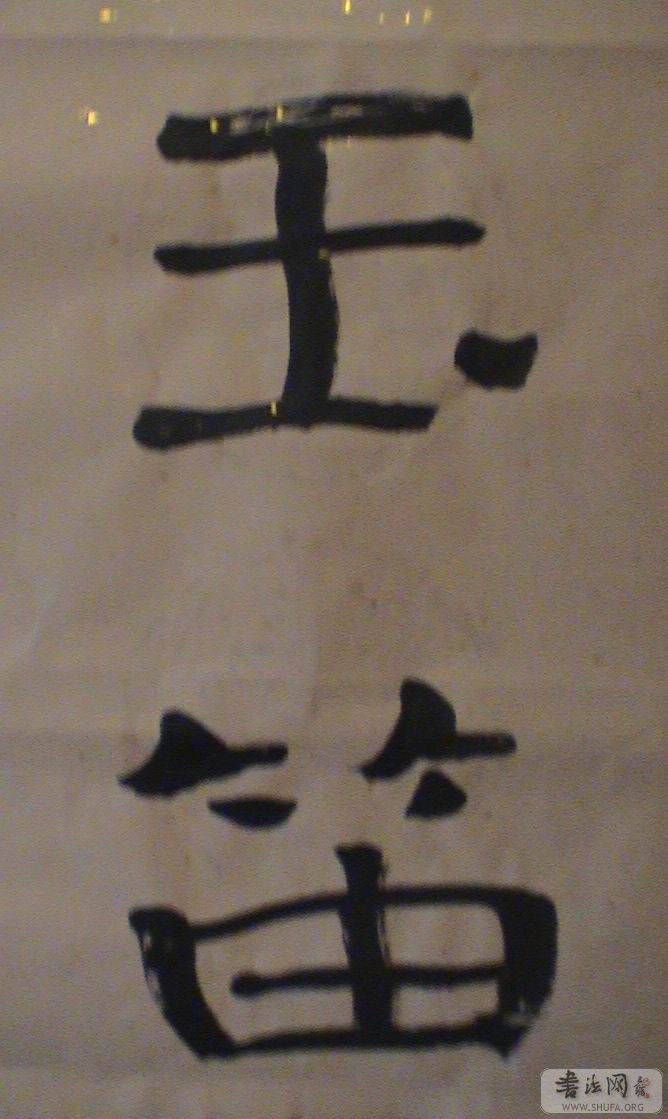 玉笛
书法网
WWW.SHUFA.ORG